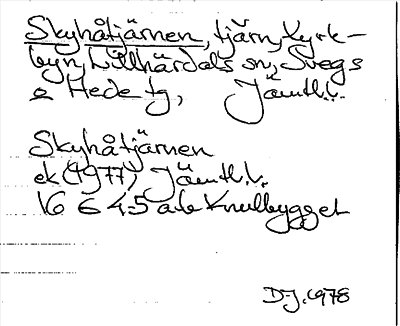 Skyhåtjärnen, tjärn, Kyrk-
byn, Lillhärdals sn, Svegs
o Hede tg, Jämtl.l.
Skyhåtjärnen
ek (1977) Jämtl.l.
16 E 4-5 a-b Knulbygget
D-J. 1978